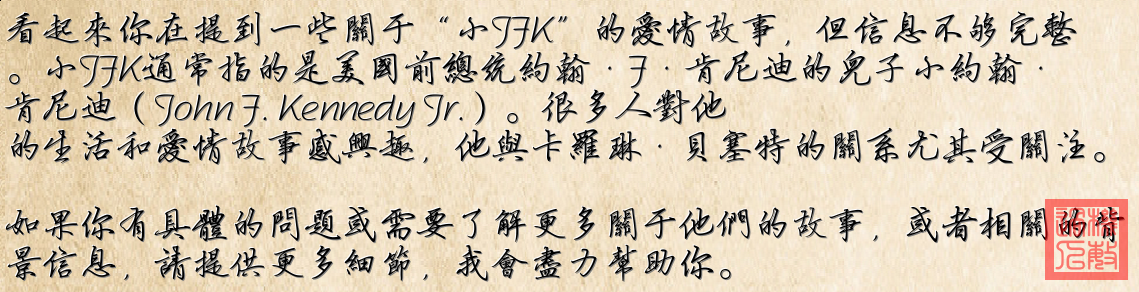 看起來你在提到一些關于“小JFK”的愛情故事，但信息不够完整
。小JFK通常指的是美國前總統約翰·F·肯尼迪的兒子小約翰·
肯尼迪（John F. Kennedy Jr.）。很多人對他
的生活和愛情故事感興趣，他與卡羅琳·貝塞特的關系尤其受關注。
如果你有具體的問題或需要了解更多關于他們的故事，或者相關的背
景信息，請提供更多細節，我會盡力幫助你。